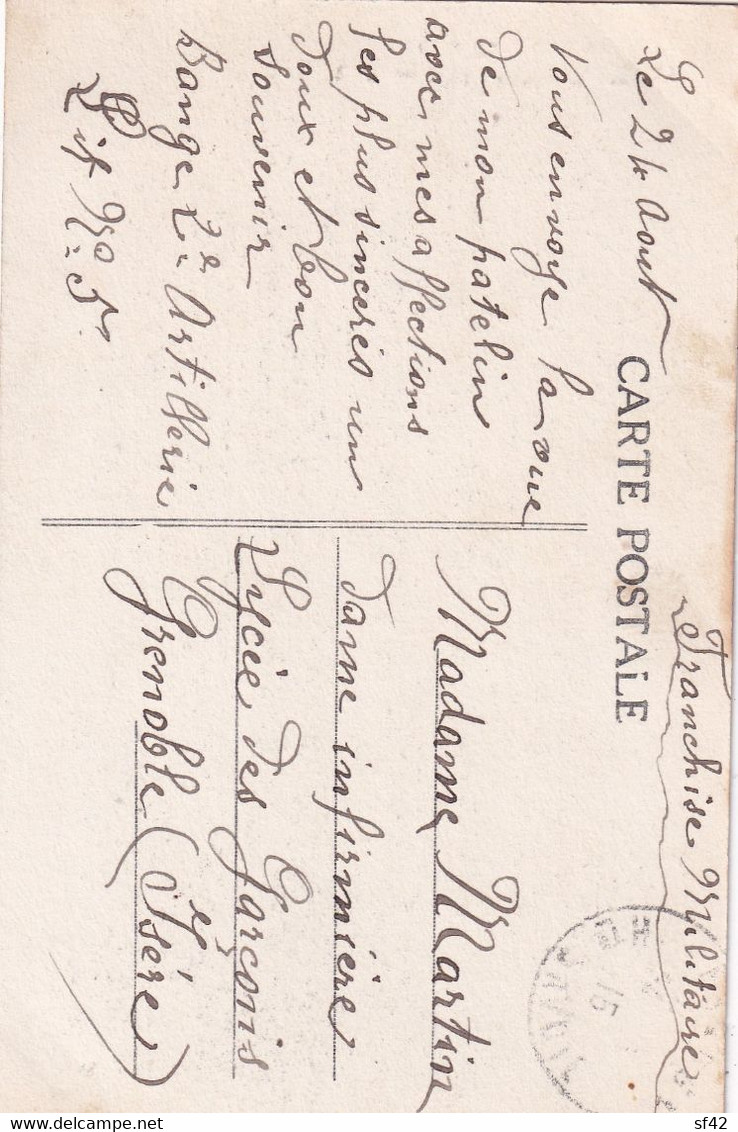 Franchise Militaire
CARTE POSTALE
Le 24 Aout
Vous envoye la vue
de mon patelin
avec mes affections
les plus sincères un
doux et bon
souvenir
Bange 2e Artillerie
Lit No 5.
Madame Martin
dame infirmière
Lycée des Garçons
Grenoble (Isère)
15
www.delcampe.net
sf42